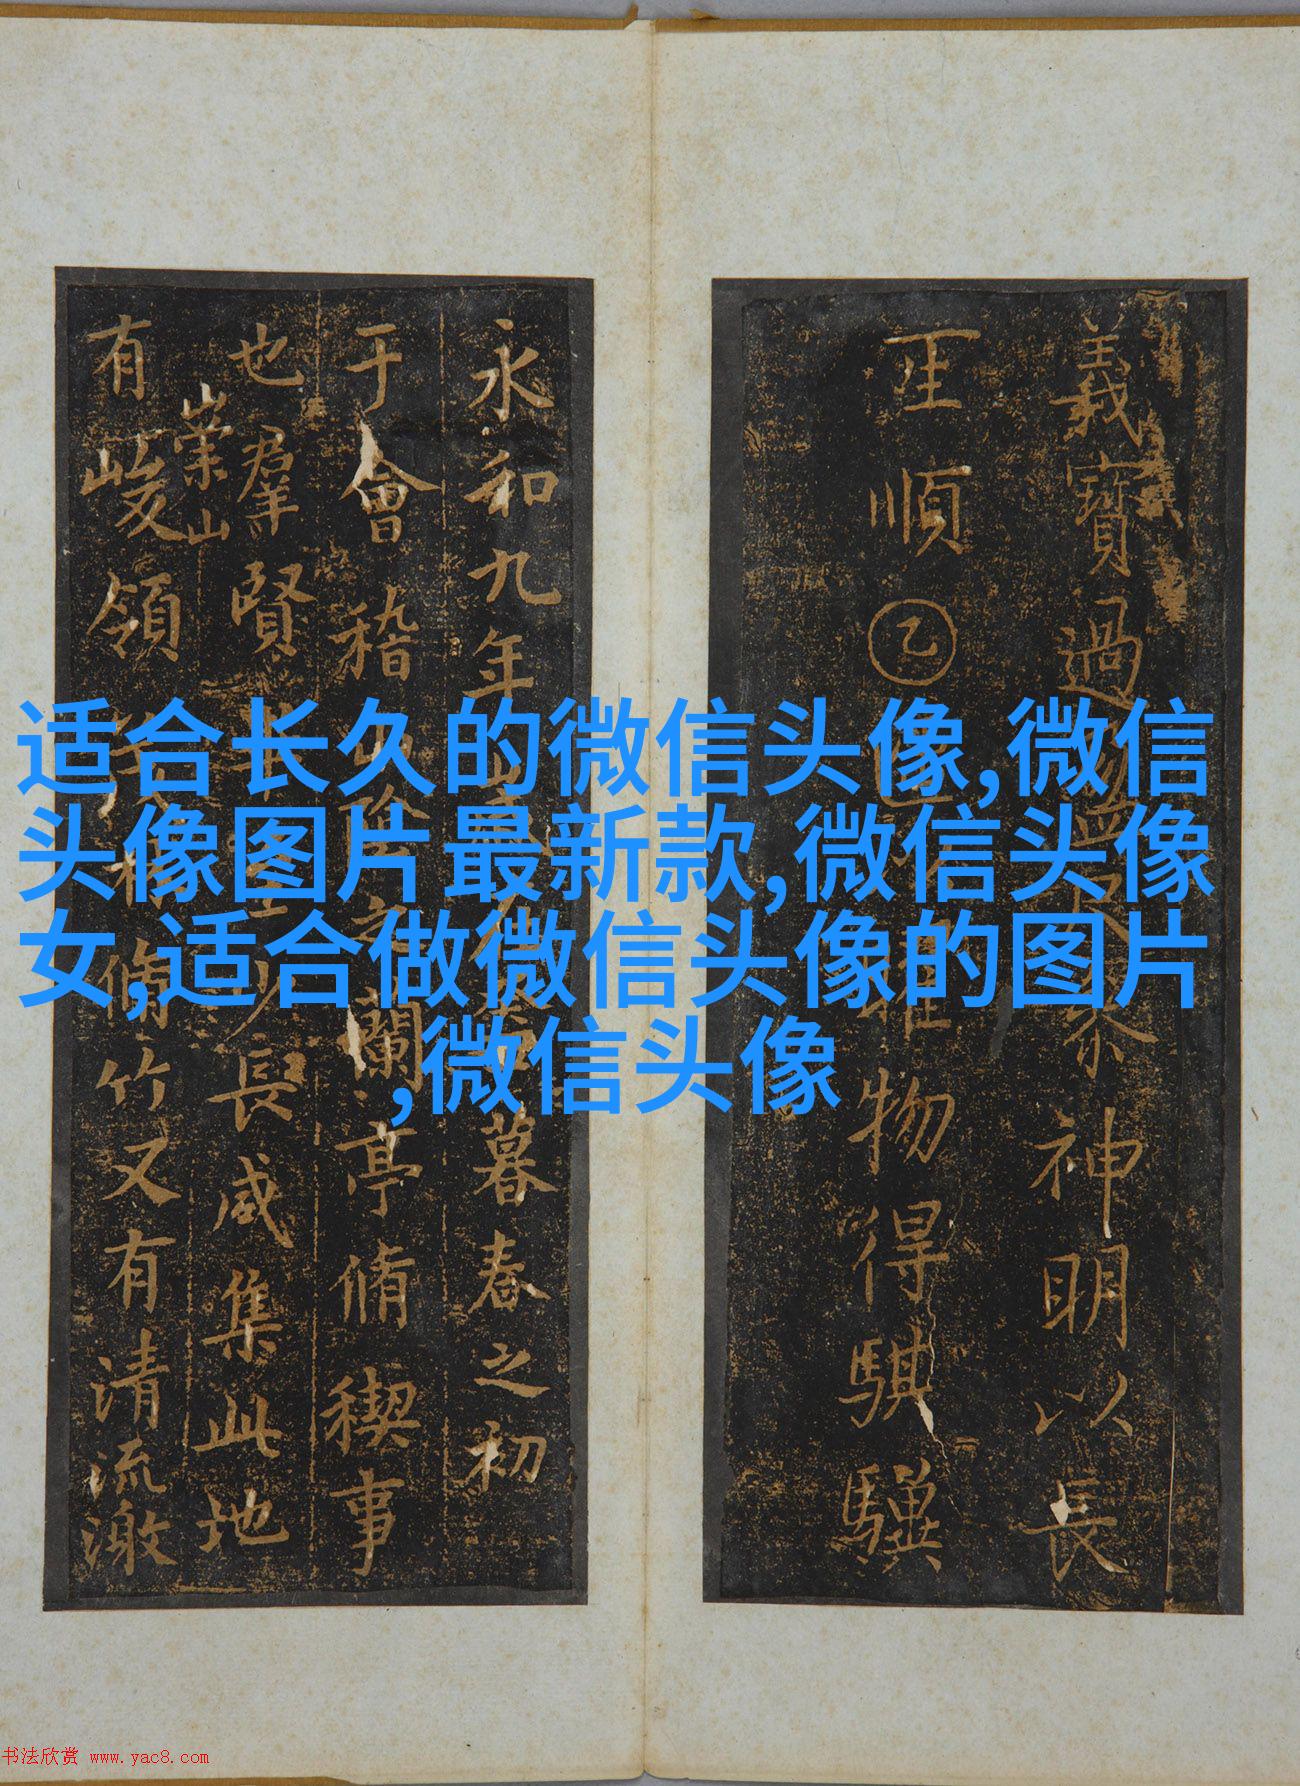 適合长久的微信头像,微信
头像图片最新款,微信头像
女,适合做微信头像的图片
,微信头像
義寶過
神明以長
王順乙
物得騏驥
永和九年
暮春之初
于會稽山陰之蘭亭脩禊事
也羣賢
少長咸集此地
崇山
有峻領
脩竹又有清流激
书法欣赏 www.yac8.com